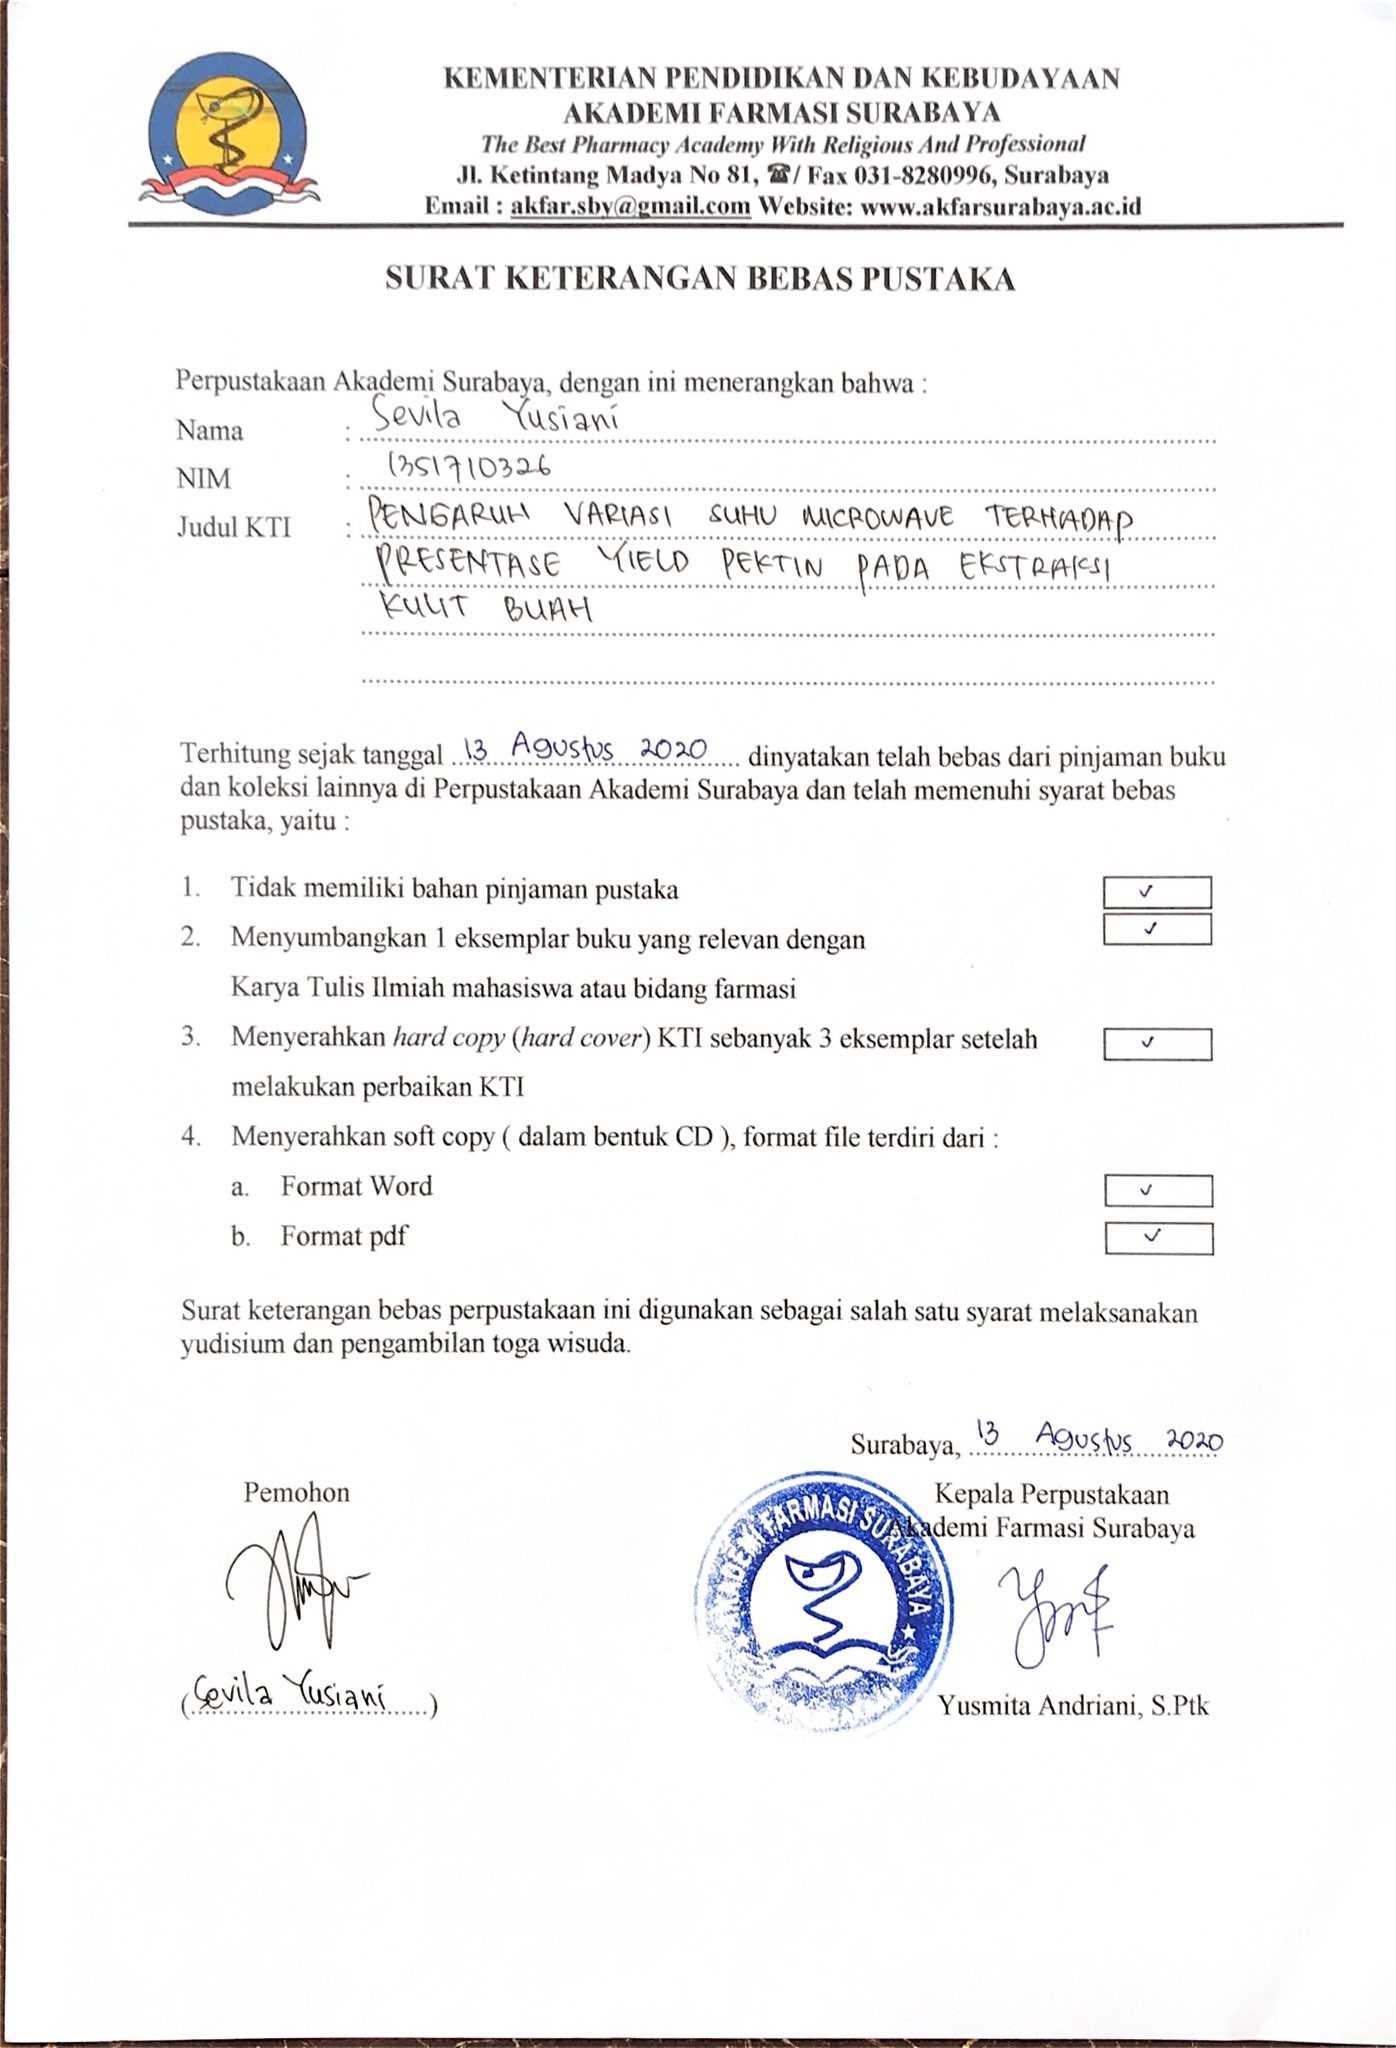 KEMENTERIAN PENDIDIKAN DAN KEBUDAYAAN
AKADEMI FARMASI SURABAYA
The Best Pharmacy Academy With Religious And Professional
Jl. Ketintang Madya No 81, ☎/ Fax 031-8280996, Surabaya
Email : akfar.sby@gmail.com Website: www.akfarsurabaya.ac.id
SURAT KETERANGAN BEBAS PUSTAKA
Perpustakaan Akademi Surabaya, dengan ini menerangkan bahwa :
Nama : Sevila Yusiani
NIM : 1351710326
Judul KTI : PENGARUH VARIASI SUHU MICROWAVE TERHADAP
PRESENTASE YIELD PEKTIN PADA EKSTRAKSI
KULIT BUAH
Terhitung sejak tanggal 13 Agustus 2020 dinyatakan telah bebas dari pinjaman buku
dan koleksi lainnya di Perpustakaan Akademi Surabaya dan telah memenuhi syarat bebas
pustaka, yaitu :
1. Tidak memiliki bahan pinjaman pustaka ✓
2. Menyumbangkan 1 eksemplar buku yang relevan dengan ✓
Karya Tulis Ilmiah mahasiswa atau bidang farmasi
3. Menyerahkan hard copy (hard cover) KTI sebanyak 3 eksemplar setelah ✓
melakukan perbaikan KTI
4. Menyerahkan soft copy ( dalam bentuk CD ), format file terdiri dari :
a. Format Word ✓
b. Format pdf ✓
Surat keterangan bebas perpustakaan ini digunakan sebagai salah satu syarat melaksanakan
yudisium dan pengambilan toga wisuda.
Surabaya, 13 Agustus 2020
Pemohon
Kepala Perpustakaan
Akademi Farmasi Surabaya
AKADEMI FARMASI SURABAYA
(Sevila Yusiani)
Yusmita Andriani, S.Ptk